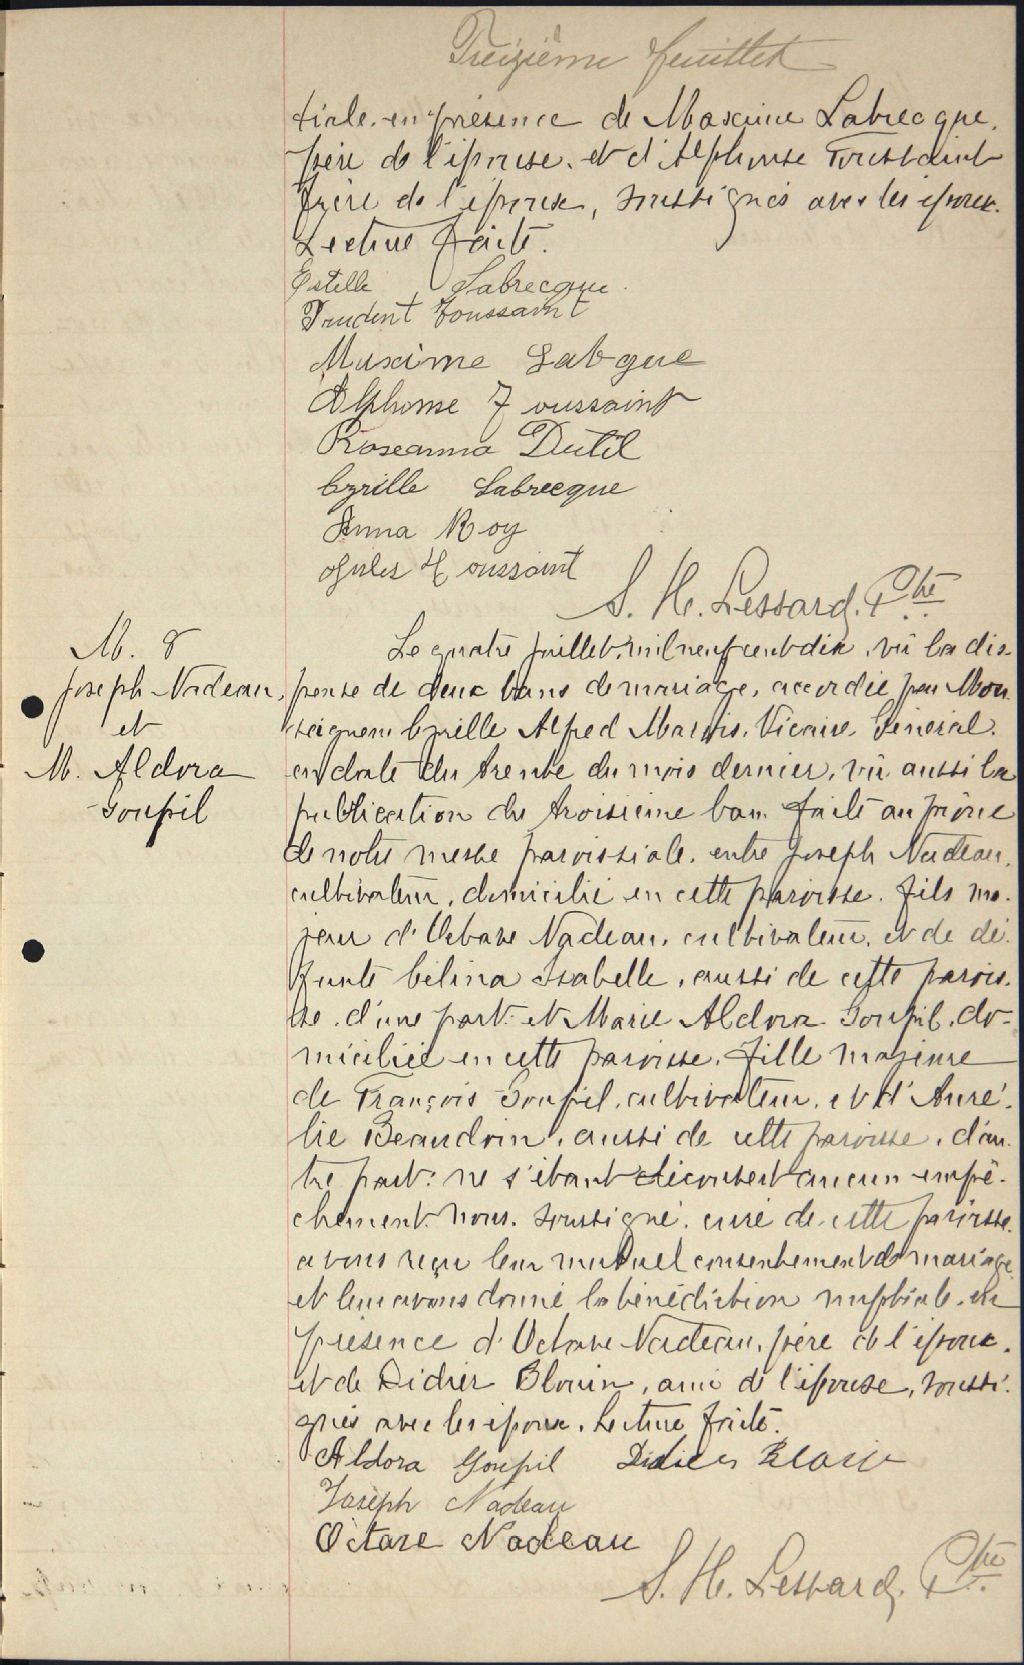 Treizième feuillet
tiale. en présence de Maxime Labrecque,
père de l'épouse. et d'Alphonse Toussaint
frère de l'époux, soussignés avec les époux.
Lecture faite.
Estelle Labrecque.
Prudent Toussaint
Maxime Labque
Alphonse Toussaint
Roseanna Dutil
Cyrille Labrecque
Anna Roy
Jules Toussaint
S. H. Lessard, Ptre
M. 8
Joseph Nadeau,
et
M. Aldora
Goupil
Le quatre juillet, mil neuf cent dix, vû la dis-
pense de deux bans de mariage, accordée par Mon
seigneur Cyrille Alfred Marois, Vicaire Général.
en date du trente du mois dernier, vû aussi la
publication du troisième ban faite au prône
de notre messe paroissiale. entre Joseph Nadeau,
cultivateur, domicilié en cette paroisse. fils ma-
jeur d'Octave Nadeau, cultivateur, et de dé-
funte Célina Isabelle, aussi de cette parois-
se. d'une part. et Marie Aldora Goupil, do-
miciliée en cette paroisse, fille majeure
de François Goupil, cultivateur, et d'Auré-
lie Beaudoin, aussi de cette paroisse, d'au-
tre part: ne s'étant découvert aucun empê-
chement. nous. soussigné. curé de cette paroisse.
avons reçu leur mutuel consentement de mariage
et leur avons donné la bénédiction nuptiale. en
présence d'Octave Nadeau, père de l'époux.
et de Didier Blouin, ami de l'épouse, soussi-
gnés avec les époux. Lecture faite.
Aldora Goupil Didier
Joseph Nadeau
Octave Nadeau
S. H. Lessard, Ptre